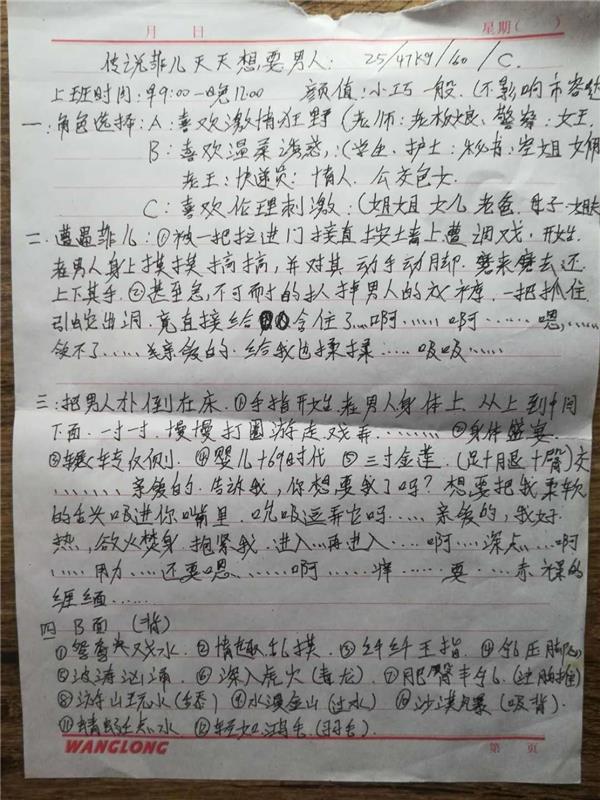 月 日 星期( )
传说菲儿天天想要男人: 25/47kg/160/C.
上班时间:早9:00—晚12:00 颜值:小巧一般.(不影响市容
一:角色选择:A:喜欢激情狂野(老师:老板娘、警察:女王,
B:喜欢温柔诱惑,:(学生、护士:秘书:空姐女佣
老王:快递员:情人.公交色女.
C:喜欢伦理刺激:(姐姐 女儿 老爸.母子
二.遭遇菲儿:①被一把拉进门 接直按土墙上遭调戏.开始
在男人身上摸摸搞搞,并对其动手动脚.蹭来蹭去还
上下其手.②甚至急,不可耐的 男人的 一把抓住
引蛇出洞.竟直接给 含住了…啊…… 啊…… 嗯,……
受不了……亲爱的.给我也揉揉……吸吸……
三:把男人扑倒在床.①手指开始在男人身体上.从上到中间
下面.一寸一寸.慢慢打圈游走戏弄……… ②身体盛宴
③辗转反侧.④婴儿+69时代 ⑤三寸金莲.(足+月退+臀)交
………亲爱的.告诉我,你想要我了吗?想要把我柔软
的舌头吸进你嘴里.吮吸逗弄它吗……亲爱的,我好
热,欲火焚身.抱紧我.进入…再进入……啊…深点…啊
……用力……还要嗯………啊……痒……要…赤裸的
缠绵……
四 B面 (背)
①鸳鸯戏水.②情趣乳摸 ③纤纤玉指.④乳压脚心
⑤波涛汹涌 ⑥深入虎穴(毒龙) ⑦肥臀丰乳.
⑧游山玩水 ⑨水漫金山(过水) ⑩沙漠风暴(吸背).
⑪蜻蜓点水 ⑫轻如鸿毛.(羽毛).
WANGLONG 第 页